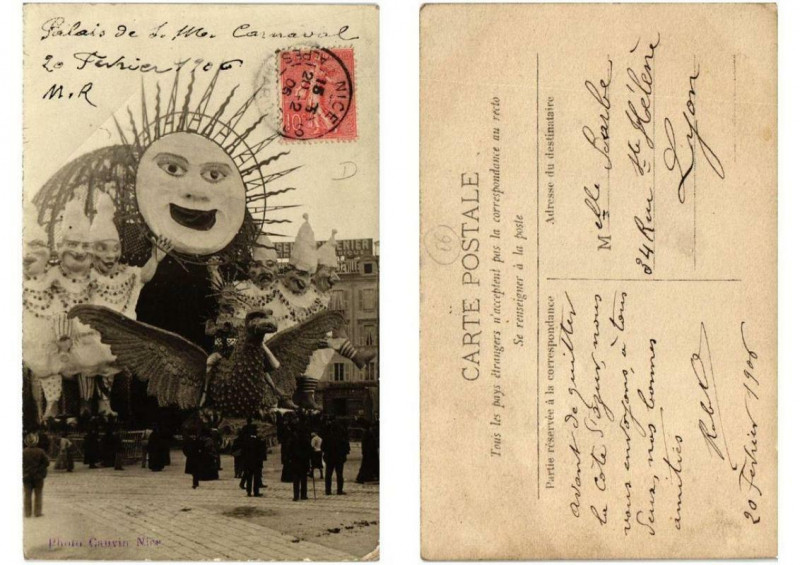 Palais de S. M. Carnaval
20 Février 1906
M.R
NICE
ALPES
20-2
06
D
Photo Cauvin Nice
CARTE POSTALE
Tous les pays étrangers n'acceptent pas la correspondance au recto
Se renseigner à la poste
Partie réservée à la correspondance
Adresse du destinataire
avant de quitter
la Côte d'Azur, nous
vous envoyons, à tous
deux, nos bonnes
amitiés
20 Février 1906
Melle Barbe
34 Rue Ste Hélène
Lyon